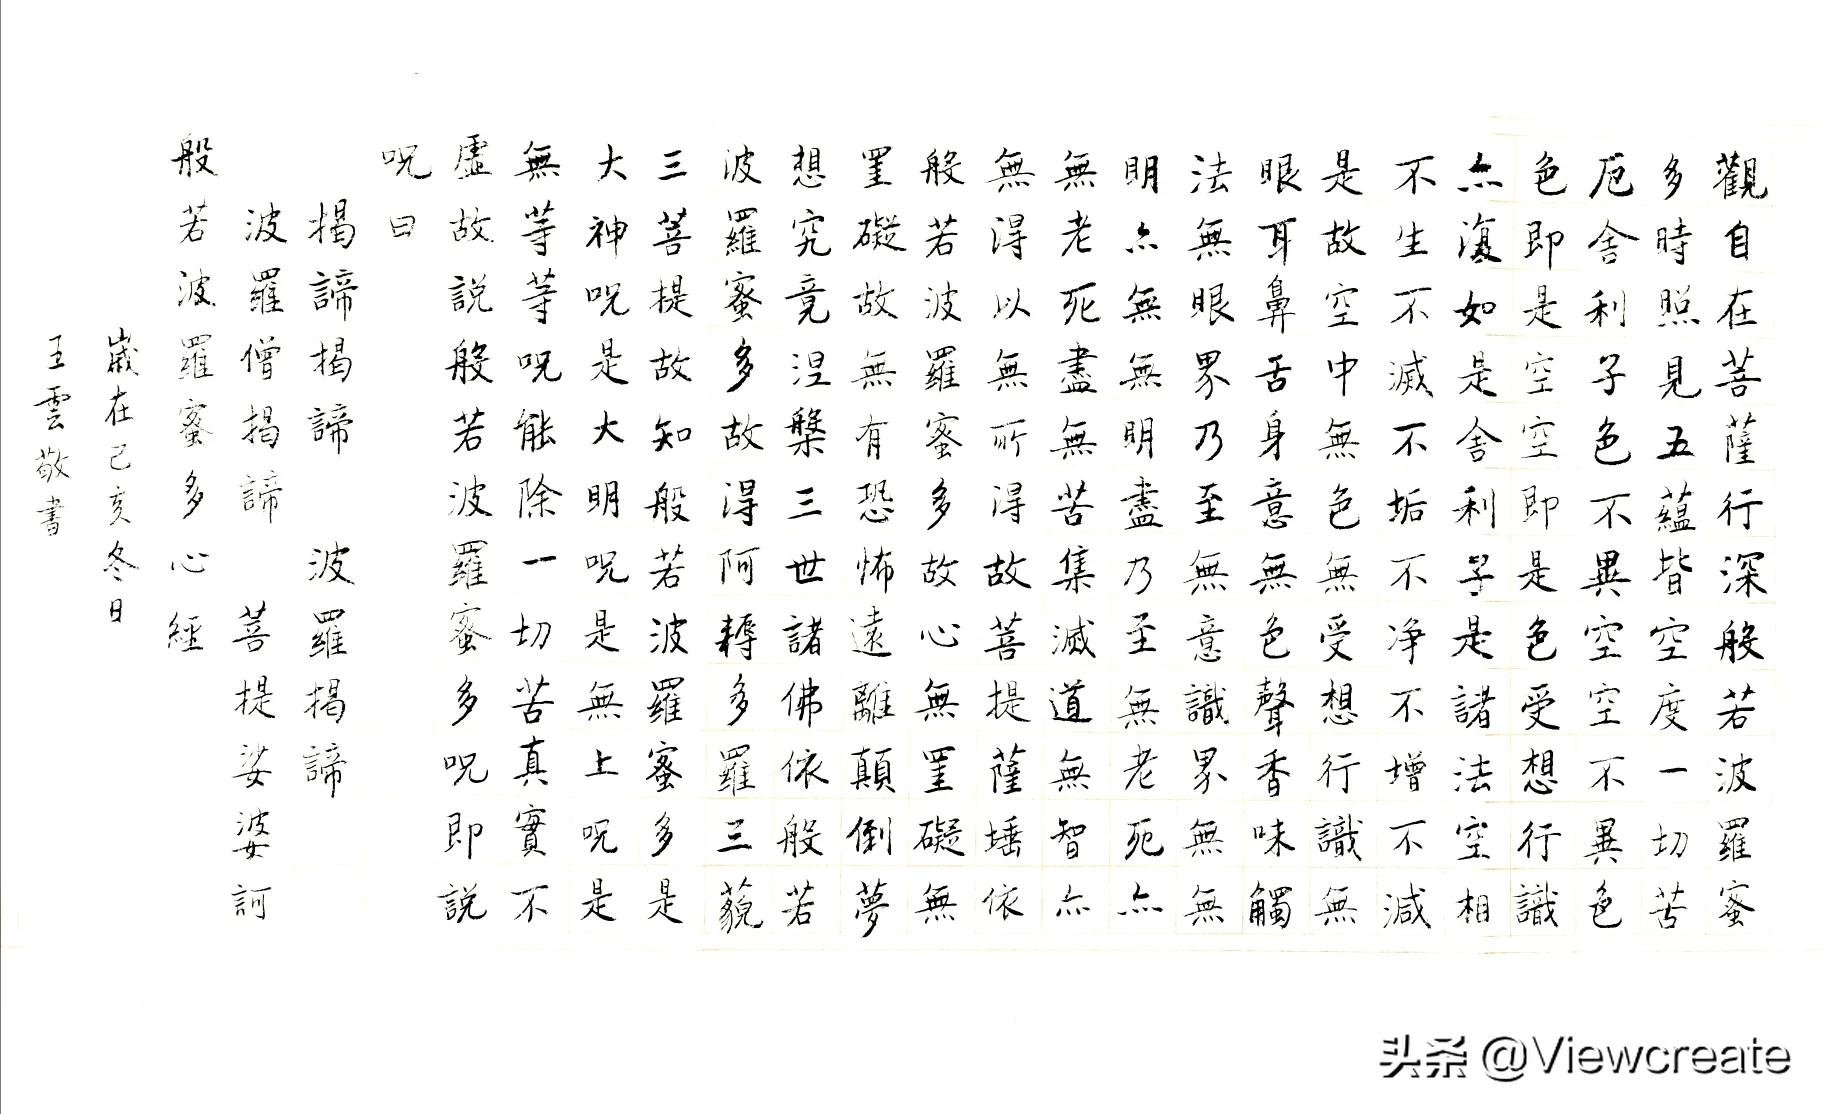 觀自在菩薩行深般若波羅蜜
多時照見五蘊皆空度一切苦
厄舍利子色不異空空不異色
色即是空空即是色受想行識
亦復如是舍利子是諸法空相
不生不滅不垢不净不增不減
是故空中無色無受想行識無
眼耳鼻舌身意無色聲香味觸
法無眼界乃至無意識界無無
明亦無無明盡乃至無老死亦
無老死盡無苦集滅道無智亦
無得以無所得故菩提薩埵依
般若波羅蜜多故心無罣礙無
罣礙故無有恐怖遠離顛倒夢
想究竟涅槃三世諸佛依般若
波羅蜜多故得阿耨多羅三藐
三菩提故知般若波羅蜜多是
大神呪是大明呪是無上呪是
無等等呪能除一切苦真實不
虛故説般若波羅蜜多呪即説
呪曰
揭諦揭諦 波羅揭諦
波羅僧揭諦 菩提娑婆訶
般若波羅蜜多心經
歲在己亥冬日
王雲敬書
头条 @Viewcreate